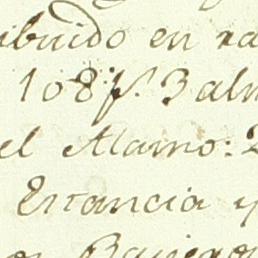 ibuido en ra
108 f. 3 alm
el Alamo: 2
Estancia y